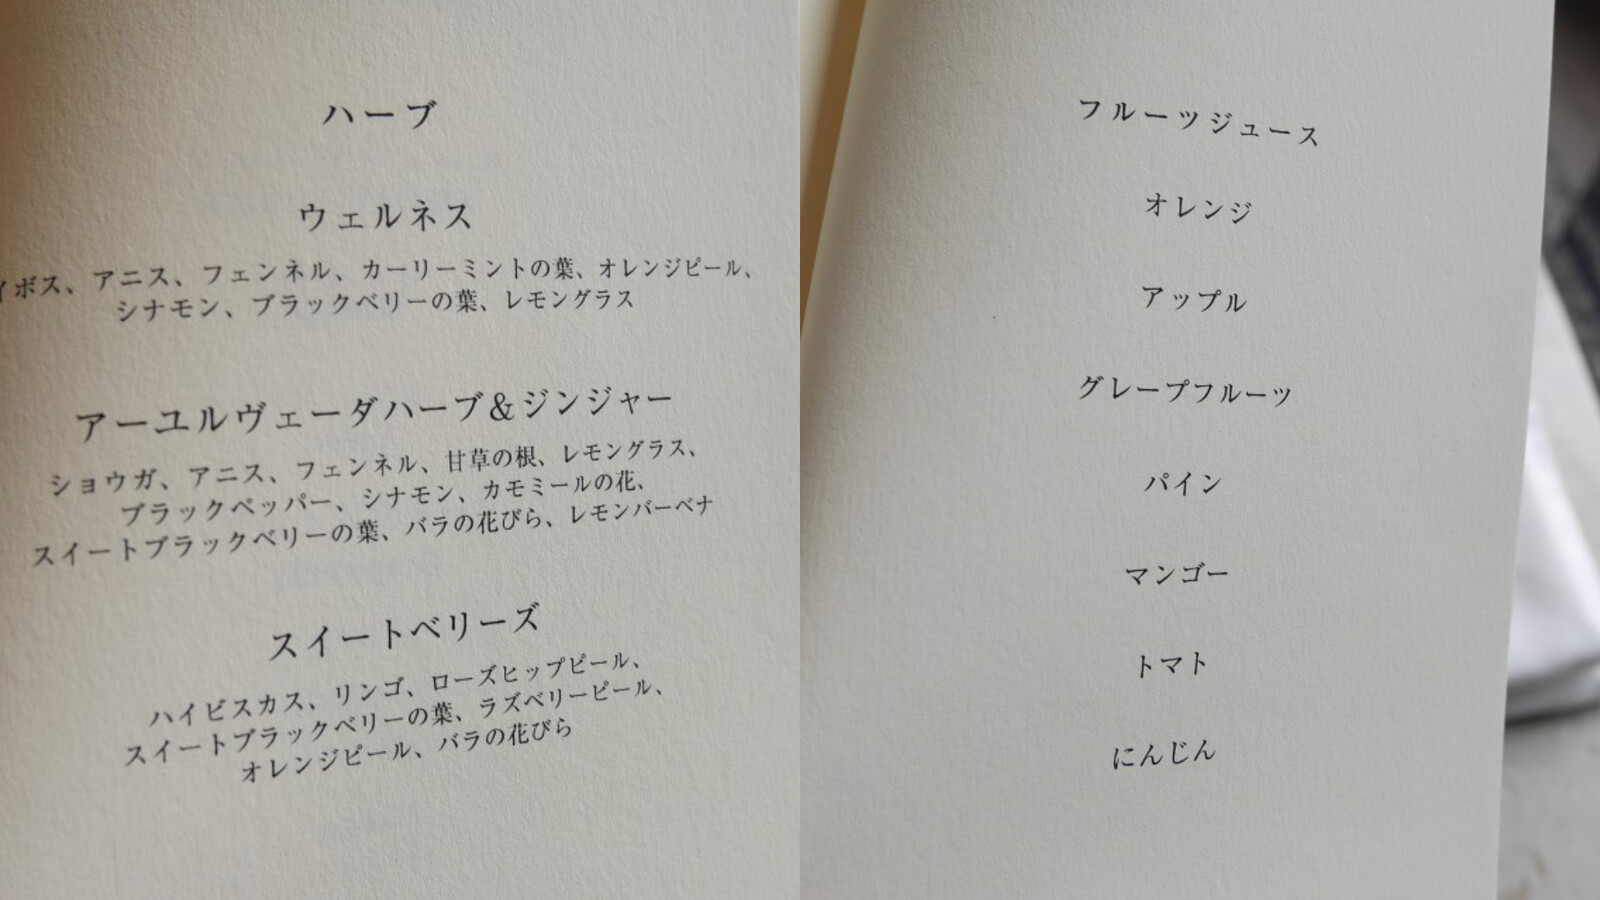 ハーブ
ウェルネス
イボス、アニス、フェンネル、カーリーミントの葉、オレンジピール、
シナモン、ブラックベリーの葉、レモングラス
アーユルヴェーダハーブ&ジンジャー
ショウガ、アニス、フェンネル、甘草の根、レモングラス、
ブラックペッパー、シナモン、カモミールの花、
スイートブラックベリーの葉、バラの花びら、レモンバーベナ
スイートベリーズ
ハイビスカス、リンゴ、ローズヒップピール、
スイートブラックベリーの葉、ラズベリーピール、
オレンジピール、バラの花びら
フルーツジュース
オレンジ
アップル
グレープフルーツ
パイン
マンゴー
トマト
にんじん